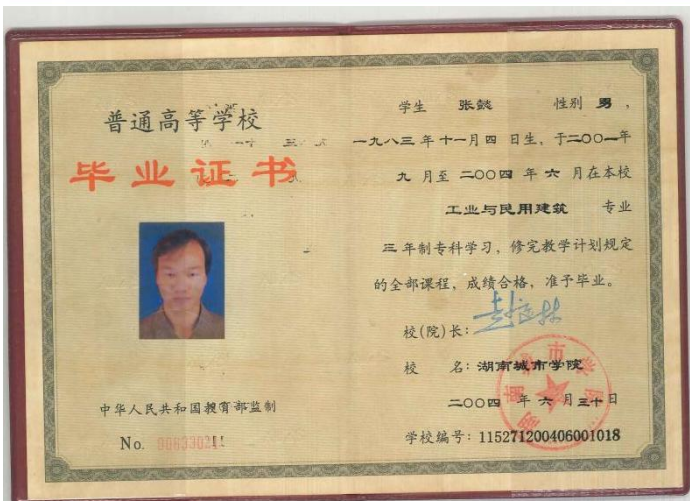 普通高等学校
毕业证书
中华人民共和国教育部监制
No.
学生 张懿 性别 男，
一九八三年十一月四 日生，于二〇〇一年
九 月至 二〇〇四 年 六 月在本校
工业与民用建筑 专业
三 年制专科学习，修完教学计划规定
的全部课程，成绩合格，准予毕业。
校(院)长：
校 名：湖南城市学院
二〇〇四 年 六 月三十日
学校编号：115271200406001018